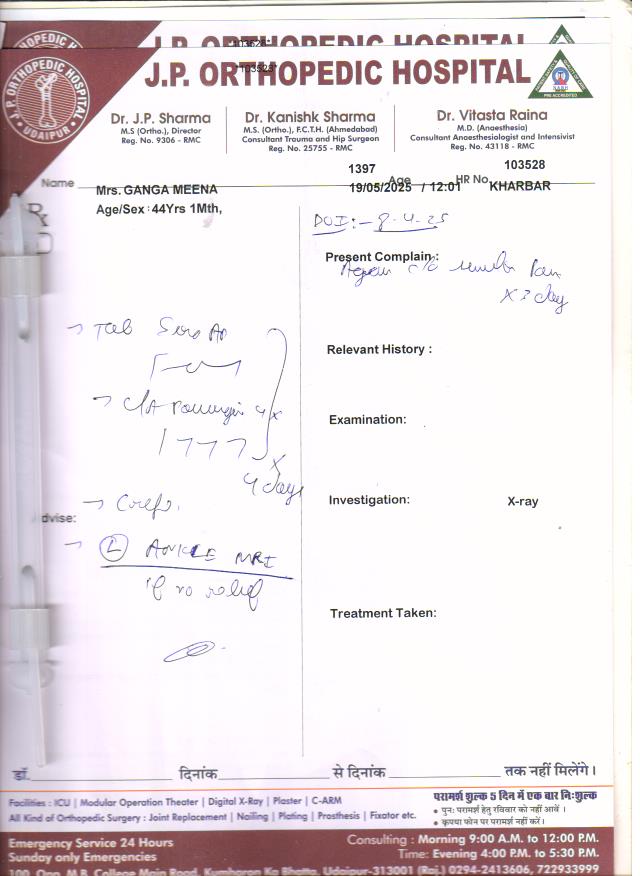 J.P. ORTHOPEDIC HOSPITAL
*103528*
J.P. ORTHOPEDIC HOSPITAL
J.P. ORTHOPEDIC HOSPITAL
UDAIPUR
NABH
PRE ACCREDITED
Dr. J.P. Sharma
M.S (Ortho.), Director
Reg. No. 9306 - RMC
Dr. Kanishk Sharma
M.S. (Ortho.), F.C.T.H. (Ahmedabad)
Consultant Trauma and Hip Surgeon
Reg. No. 25755 - RMC
Dr. Vitasta Raina
M.D. (Anaesthesia)
Consultant Anaesthesiologist and Intensivist
Reg. No. 43118 - RMC
1397 103528
Name Age HR No.
Mrs. GANGA MEENA 19/05/2025 / 12:01 KHARBAR
Age/Sex : 44Yrs 1Mth,
Rx
DOI :- 8-4-25
Present Complain :
c/o Pain
x 3 day
Tab
Relevant History :
Examination:
x
4 days
Investigation: X-ray
dvise:
(L) ANKLE MRI
if no relief
Treatment Taken:
डॉ. दिनांक से दिनांक तक नहीं मिलेंगे।
Facilities : ICU | Modular Operation Theater | Digital X-Ray | Plaster | C-ARM
All Kind of Orthopedic Surgery : Joint Replacement | Nailing | Plating | Prosthesis | Fixator etc.
परामर्श शुल्क 5 दिन में एक बार निःशुल्क
• पुनः परामर्श हेतु रविवार को नहीं आवें ।
• कृपया फोन पर परामर्श नहीं करें।
Emergency Service 24 Hours
Sunday only Emergencies
Consulting : Morning 9:00 A.M. to 12:00 P.M.
Time: Evening 4:00 P.M. to 5:30 P.M.
100, Opp. M.B. College Main Road, Kumharon Ka Bhatta, Udaipur-313001 (Raj.) 0294-2413606, 722933999